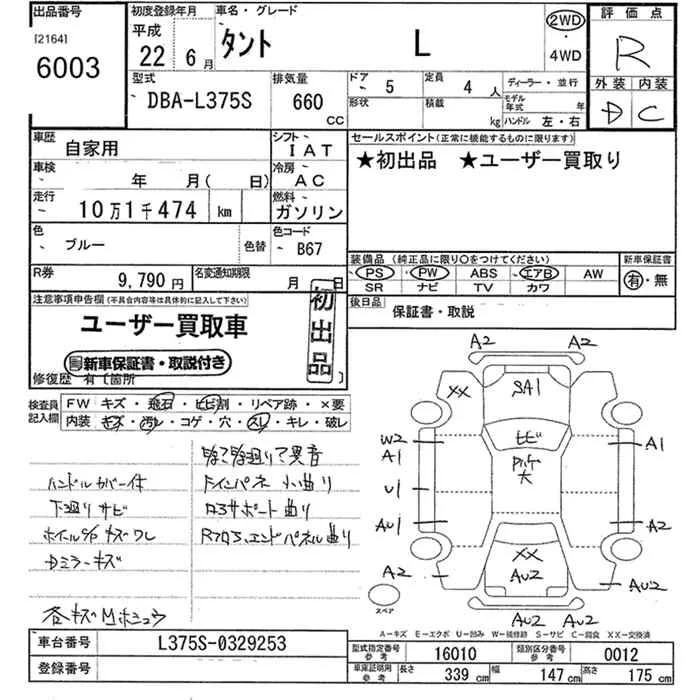 出品番号 初度登録年月 車名・グレード 評価点
[2164] 平成 タント L 2WD
6003 22 6月 ・ R
4WD
型式 排気量 ドア 5 定員 4人 ディーラー・並行 外装 内装
DBA-L375S 660 cc 形状 積載 kg モデル年式 年 D C
ハンドル 左・右
車歴 自家用 シフト IAT セールスポイント(正常に機能するものに限ります)
★初出品 ★ユーザー買取り
車検 年 月( 日) 冷房 AC
走行 10万1千474 km 燃料 ガソリン
色 ブルー 色替 色コード B67
装備品(純正品に限り〇をつけてください) 新車保証書
PS PW ABS エアB AW 有・無
SR ナビ TV カワ
R券 9,790円 名変通知期限 月 日
注意事項申告欄(不具合内容等は具体的に記入して下さい) 初出品
後日品 保証書・取説
ユーザー買取車
新車保証書・取説付き
修復歴 有〔箇所 〕
検査員記入欄 FW キズ・飛石・ヒビ割・リペア跡・×要
内装 キズ・汚レ・コゲ・穴・スレ・キレ・破レ
A2 A2
XX SA1
W2 ヒビ A1
A1
大
U1
AU1 A2
XX
A2 AU2 AU2
AU2 AU2
スペア
異音
ハンドルカバー付
下廻りサビ コアサポート曲り
キズワレ エンドパネル曲り
Dミラーキズ
各キズ
A-キズ E-エクボ U-凹み W-補修跡 S-サビ C-腐食 XX-交換済
車台番号 L375S-0329253
型式指定番号 参考 16010 類別区分番号 参考 0012
登録番号
車庫証明用 参考 長さ 339 cm 幅 147 cm 高さ 175 cm